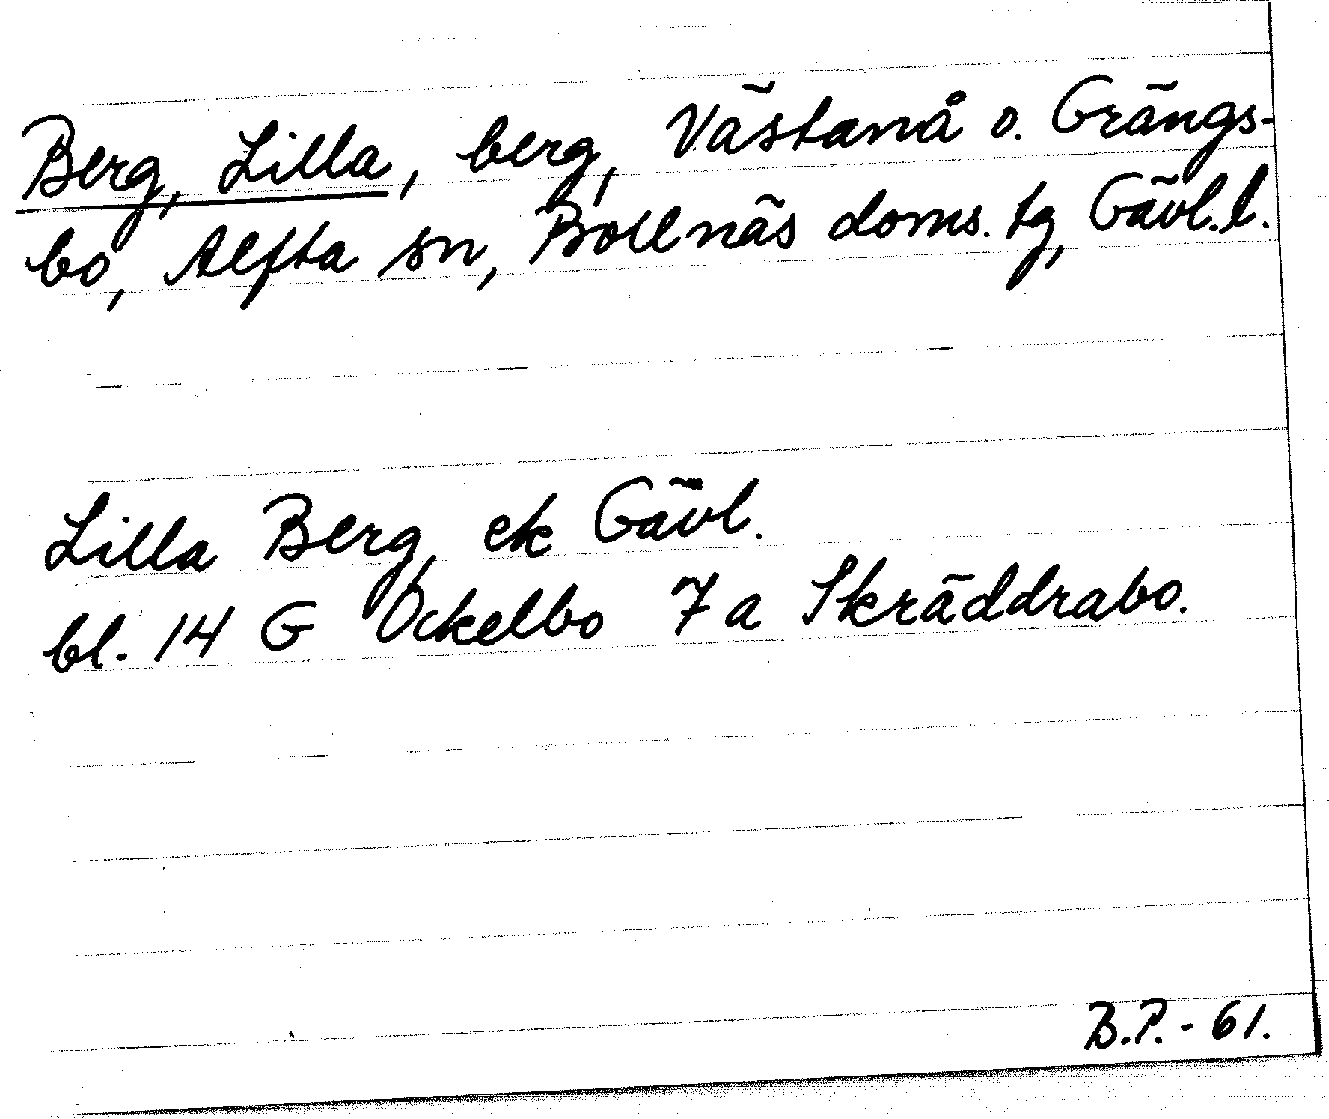 Berg, Lilla, berg, Västanå o. Grängs-
bo, Alfta sn, Bollnäs doms. tg, Gävl.l.
Lilla Berg, ek Gävl.
bl. 14 G Ockelbo 7 a Skräddrabo.
B.P. - 61.